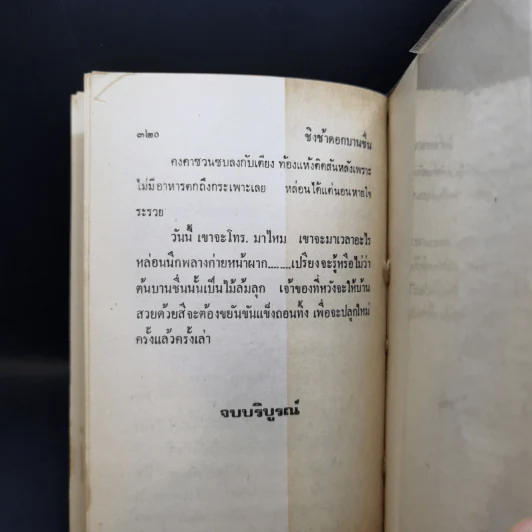 ๓๒๐ ชิงช้าดอกบานชื่น
คงคาซวนซบลงกับเตียง ท้องแห้งติดสันหลังเพราะ
ไม่มีอาหารตกถึงกระเพาะเลย หล่อนได้แต่นอนหายใจ
ระรวย
วันนี้ เขาจะโทร. มาไหม เขาจะมาเวลาอะไร
หล่อนนึกพลางก่ายหน้าผาก........เปรียงจะรู้หรือไม่ว่า
ต้นบานชื่นนั้นเป็นไม้ล้มลุก เจ้าของที่หวังจะให้บ้าน
สวยด้วยสีจะต้องขยันขันแข็งถอนทิ้ง เพื่อจะปลูกใหม่
ครั้งแล้วครั้งเล่า
จบบริบูรณ์